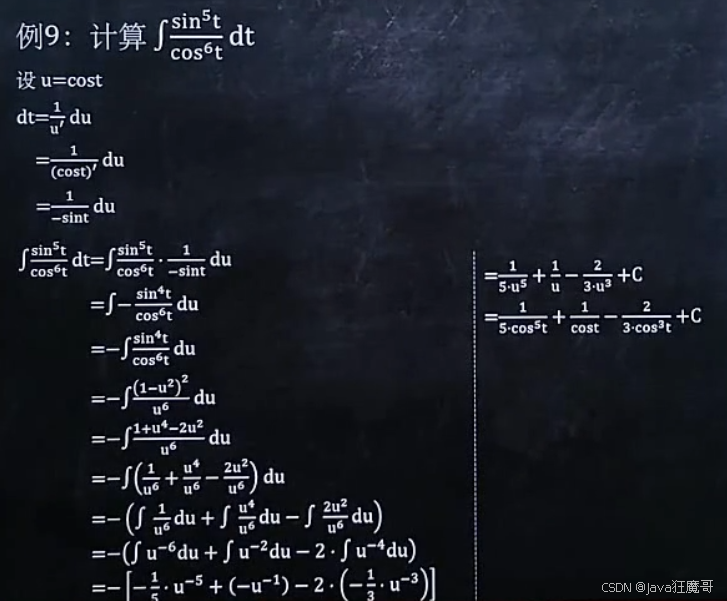 例9：计算 ∫ sin⁵t/cos⁶t dt
设 u=cost
dt=1/u′ du
=1/(cost)′ du
=1/−sint du
∫ sin⁵t/cos⁶t dt=∫ sin⁵t/cos⁶t · 1/−sint du
=∫− sin⁴t/cos⁶t du
=−∫ sin⁴t/cos⁶t du
=−∫ (1−u²)²/u⁶ du
=−∫ 1+u⁴−2u²/u⁶ du
=−∫(1/u⁶ + u⁴/u⁶ − 2u²/u⁶) du
=−(∫ 1/u⁶ du + ∫ u⁴/u⁶ du − ∫ 2u²/u⁶ du)
=−(∫ u⁻⁶du + ∫ u⁻²du − 2·∫ u⁻⁴du)
=−[−1/5 · u⁻⁵ + (−u⁻¹) − 2·(−1/3 · u⁻³)]
=1/5·u⁵ + 1/u − 2/3·u³ +C
=1/5·cos⁵t + 1/cost − 2/3·cos³t +C
CSDN @Java狂魔哥